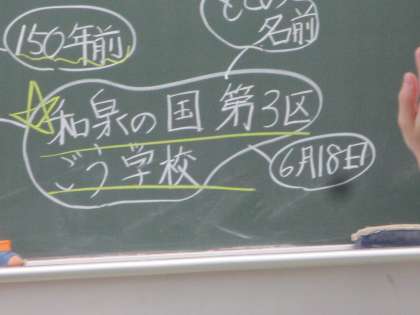 150年前
名前
和泉の国 第3区
ごう学校
6月18日